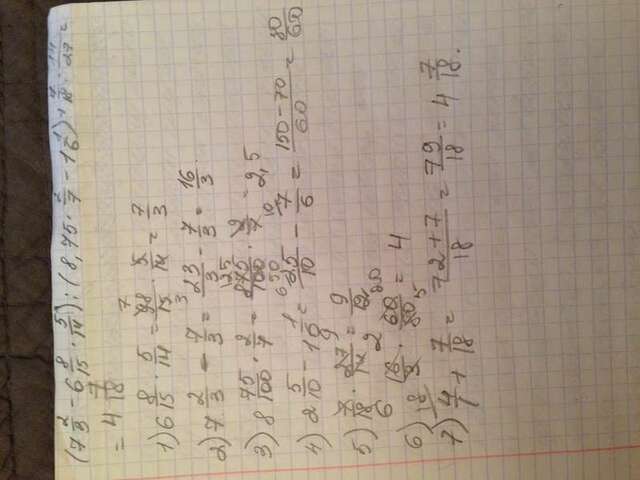 (7 2/3 - 6 8/15 · 5/14) : (8,75 · 2/7 - 1 1/6) + 7/18 · /27 =
= 4 7/18
1) 6 8/15 · 5/14 = 98/15 · 5/14 = 7/3
2) 7 2/3 - 7/3 = 23/3 - 7/3 = 16/3
3) 8 75/100 · 2/7 = 875/100 · 2/7 = 2,5
4) 2 5/10 - 1 1/6 = 25/10 - 7/6 = 150-70/60 = 80/60
5) 7/18 · 27/14 = 9/
6) 16/3 · 60/80 = 4
7) 4/1 + 7/18 = 72+7/18 = 79/18 = 4 7/18.